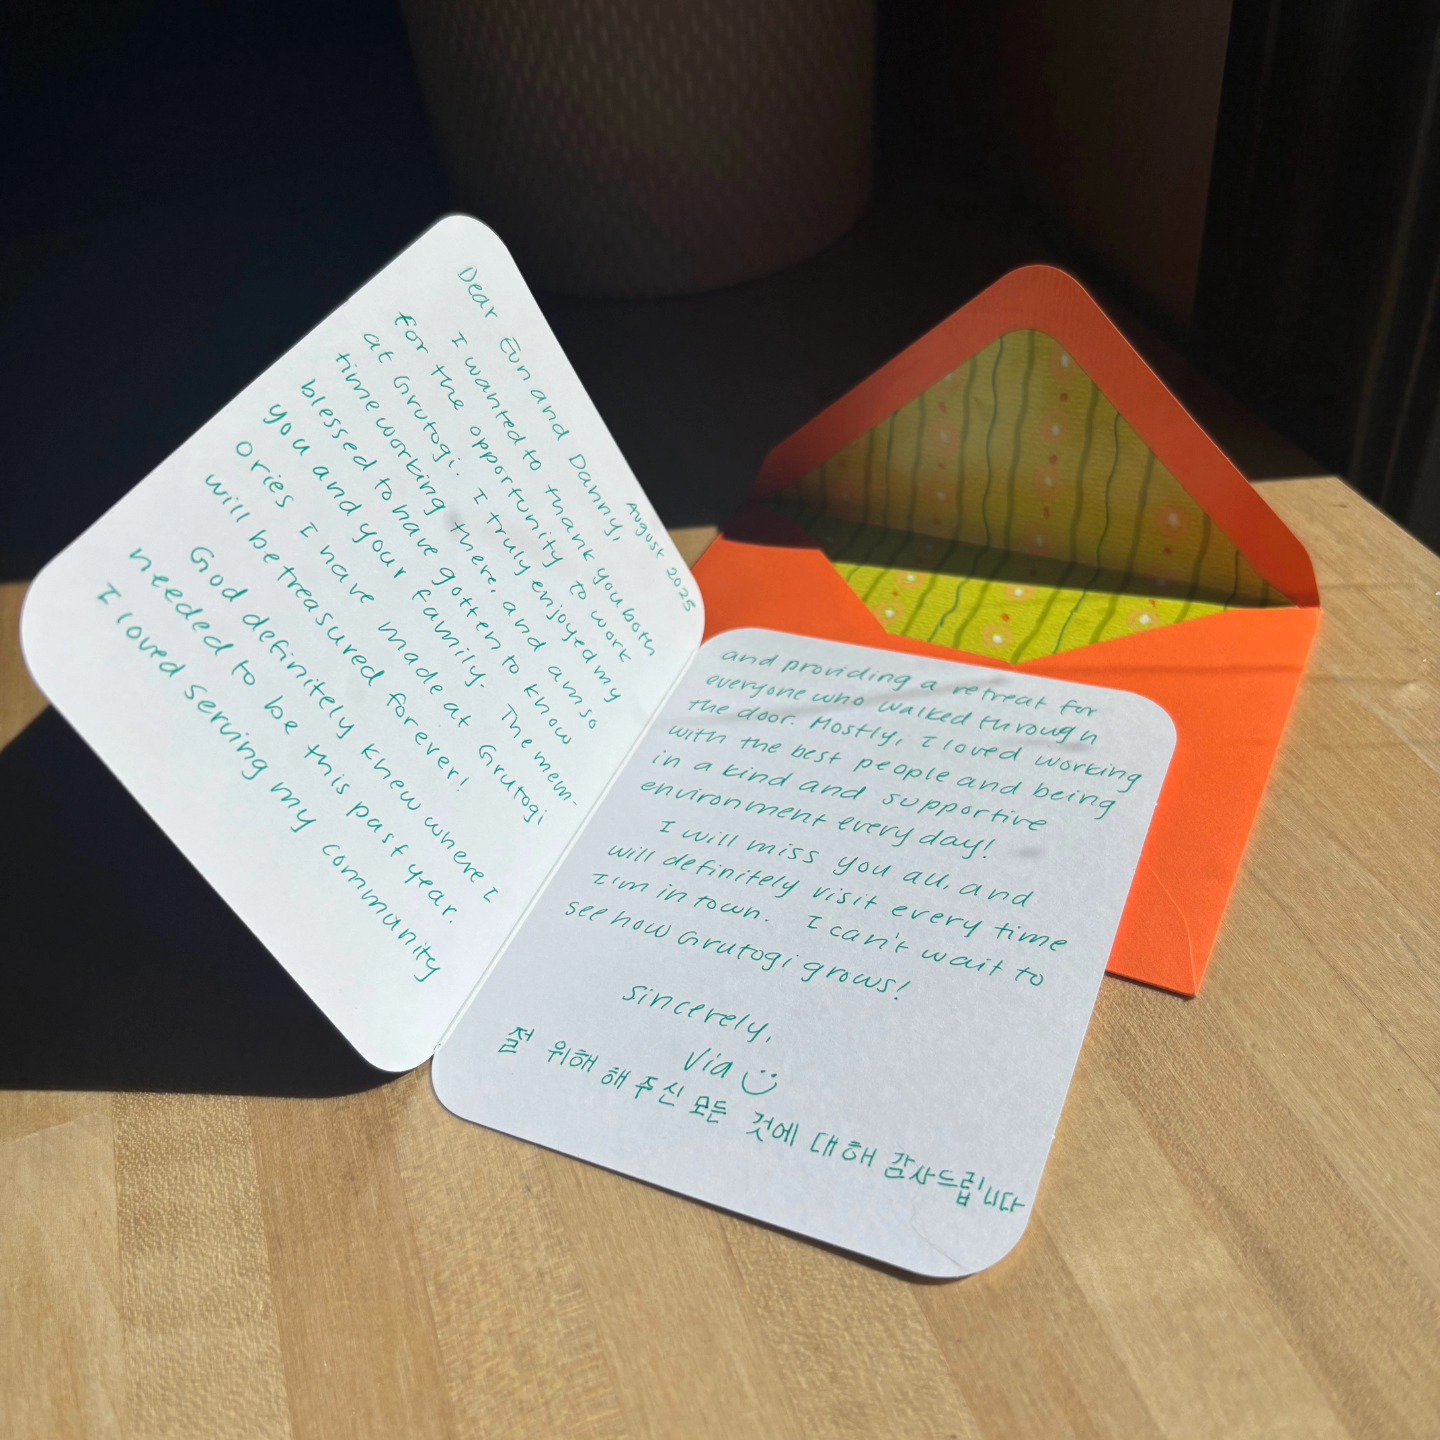 August 2025
Dear Eun and Danny,
I wanted to thank you both
for the opportunity to work
at Grutogi. I truly enjoyed my
time working there. and am so
blessed to have gotten to know
you and your family. The mem-
ories I have made at Grutogi
will be treasured forever!
God definitely knew where I
needed to be this past year.
I loved serving my community
and providing a retreat for
everyone who walked through
the door. Mostly, I loved working
with the best people and being
in a kind and supportive
environment every day!
I will miss you all, and
will definitely visit every time
I'm in town. I can't wait to
see how Grutogi grows!
Sincerely,
Via
절 위해 해 주신 모든 것에 대해 감사드립니다